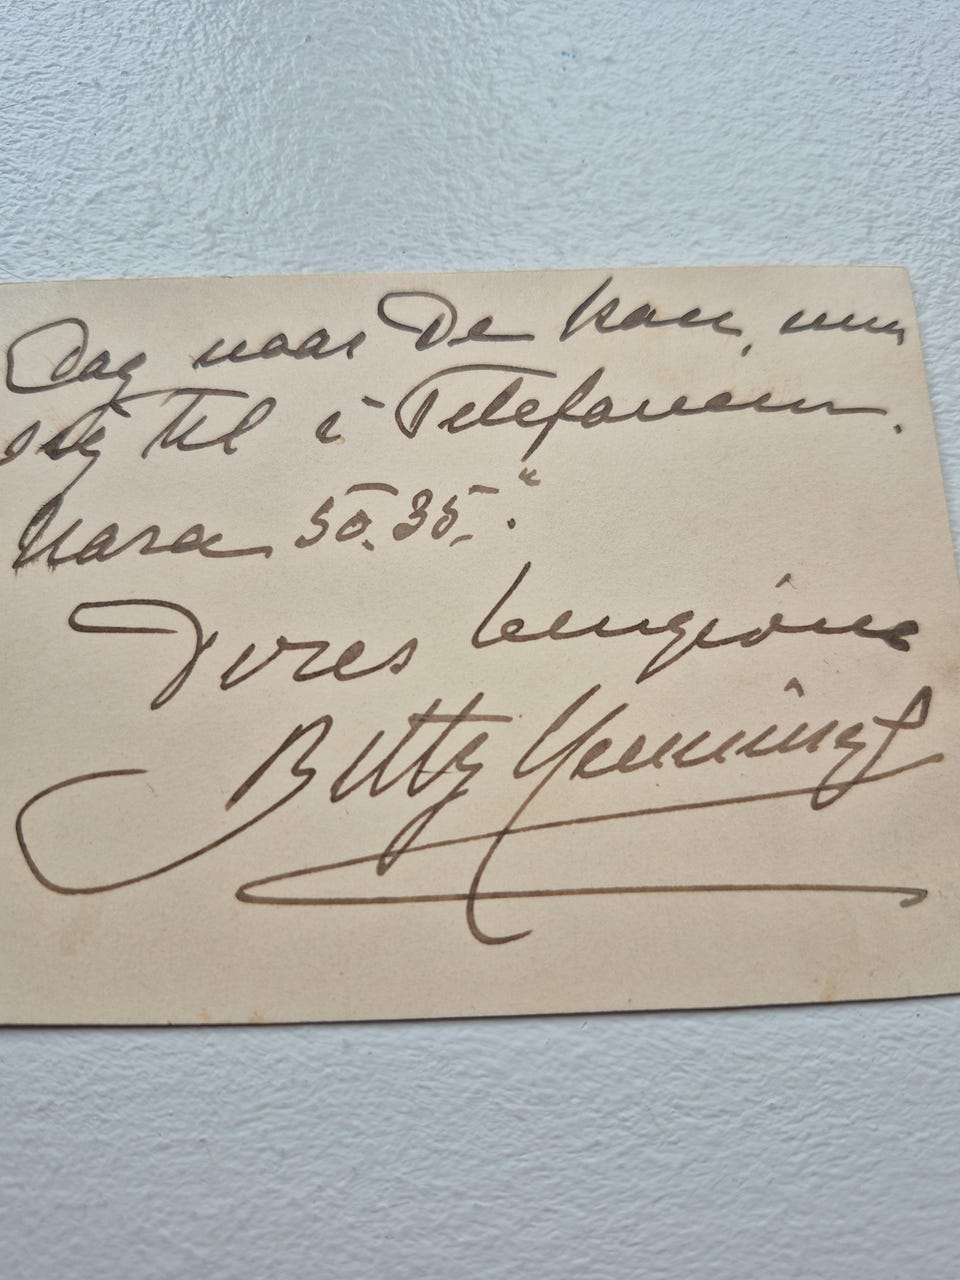 Dag naar De kan, men
sig til i Telefonen.
Nora 50.35."
Deres hengivne
Betty Hennings